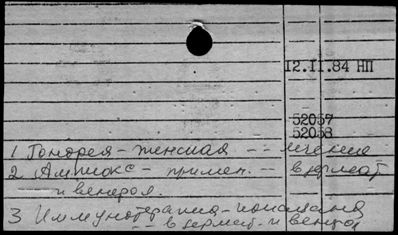 12.11.84 НП
52057
52058
1 Гонорея - женская -- лечение
2 Ампиокс - примен. -- в дермат
и венерол.
3 Иммунотерапия -
-- в дермат. и венерол